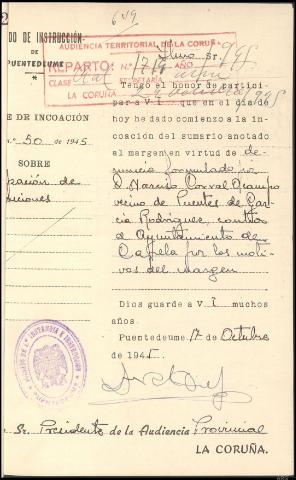 649
DO DE INSTRUCCIÓN
DE
PUENTEDEUME
AUDIENCIA TERRITORIAL DE LA CORUÑA
REPARTO N.º AÑO
CLASE SECRETARIA
LA CORUÑA
Iltmo Sr.
Tengo el honor de partici-
par a V I que en el día de
hoy he dado comienzo a la in-
coación del sumario anotado
al margen en virtud de de-
nuncia formulada por
D. Narciso Corral Ocampo
vecino de Puentes de Gar-
cía Rodríguez, contra
el Ayuntamiento de
Capela por los moti-
vos del margen.
E DE INCOACIÓN
n.º 50 de 1945
SOBRE
pación de
Dios guarde a V I muchos
años.
Puentedeume 17 de Octubre
de 1945.
JUZGADO DE 1.ª INSTANCIA E INSTRUCCIÓN
PUENTEDEUME
Sr. Presidente de la Audiencia Provincial
LA CORUÑA.